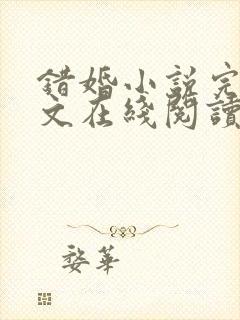 錯婚小說完
文在綫閱讀
婺華